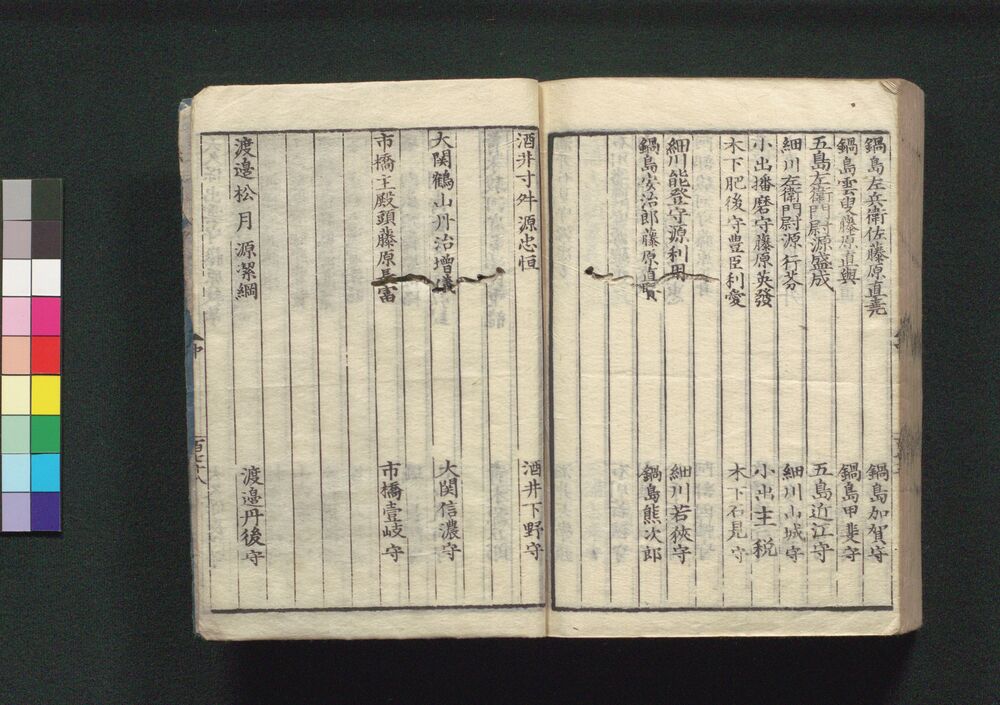 鍋島左兵衛佐藤原直堯 鍋島加賀守
鍋島雲叟藤原直與 鍋島甲斐守
五島左衛門尉源盛成 五島近江守
細川左衛門尉源行芬 細川山城守
小出播磨守藤原英發 小出主税
木下肥後守豊臣利愛 木下石見守
細川能登守源利用 細川若狹守
鍋島安治郎藤原直賢 鍋島熊次郎
酒井寸舛源忠恒 酒井下野守
大関鶴山丹治増儀 大関信濃守
市橋主殿頭藤原長富 市橋壹岐守
渡邉松月源潔綱 渡邉丹後守
中
百七十八